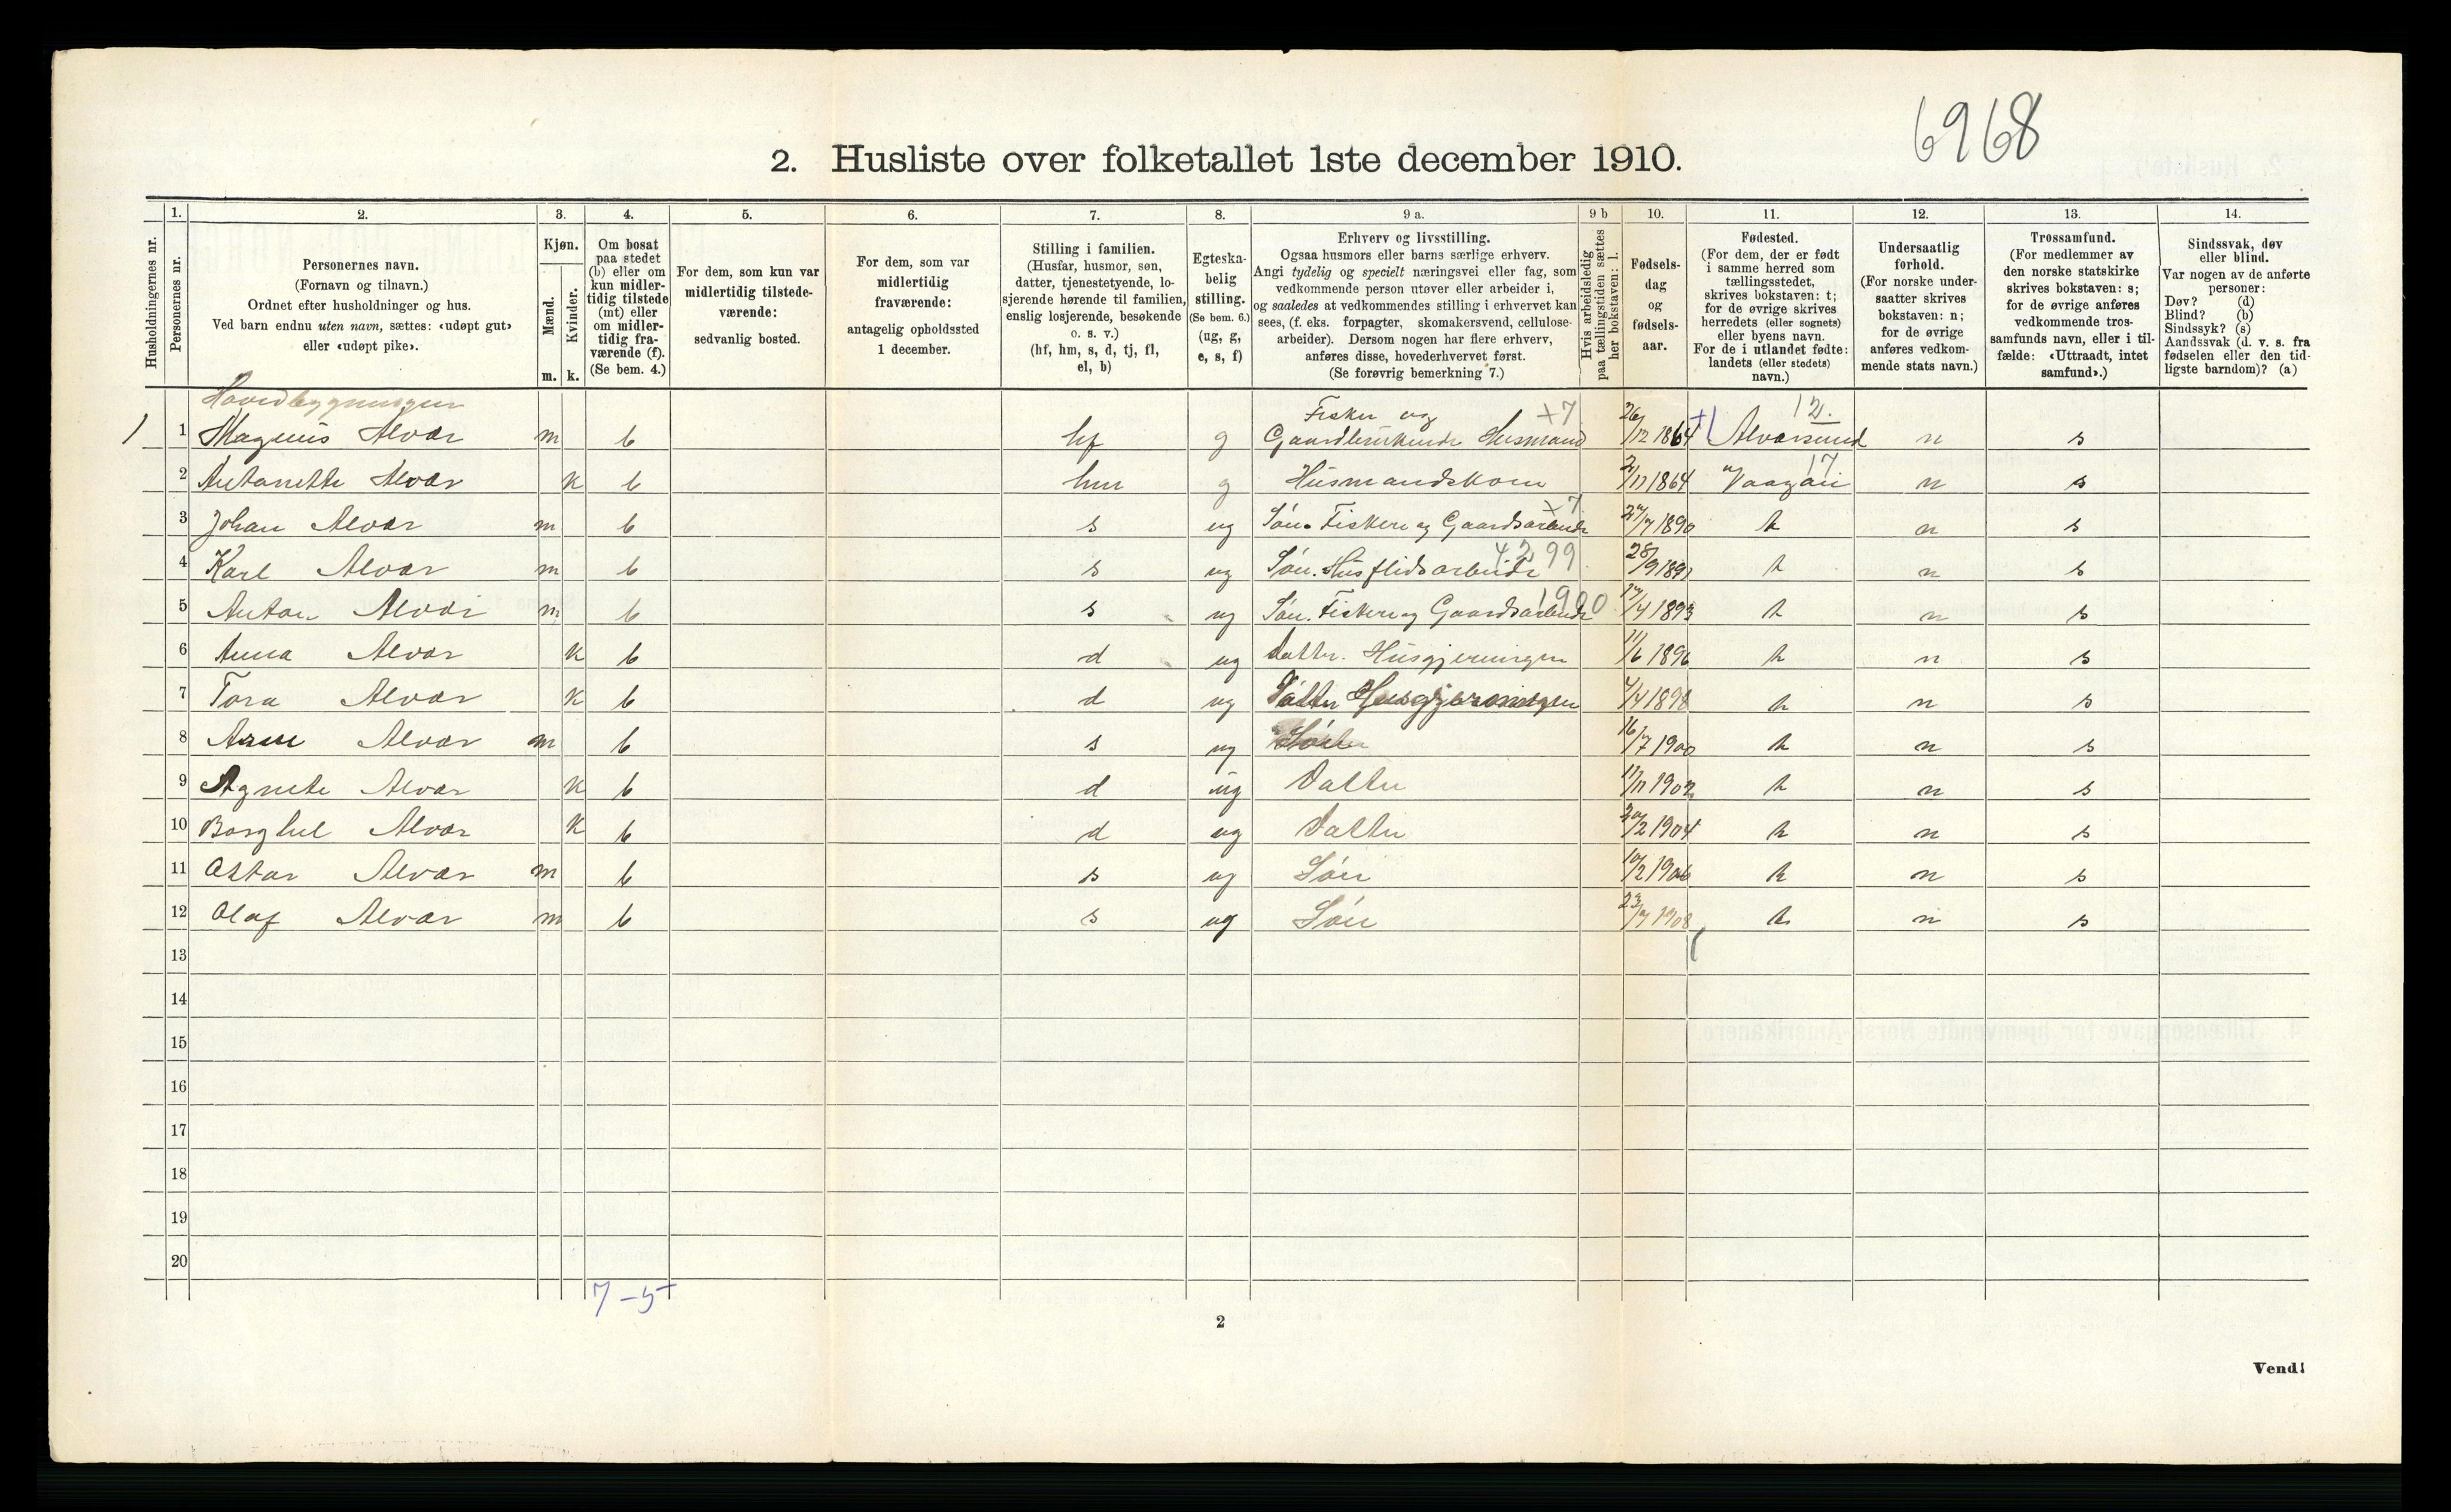 6968
2. Husliste over folketallet 1ste december 1910.
Husholdningernes nr.
1. Personernes nr.
2. Personernes navn.
(Fornavn og tilnavn.)
Ordnet efter husholdninger og hus.
Ved barn endnu uten navn, sættes: «udøpt gut»
eller «udøpt pike».
3. Kjøn.
Mænd. m.
Kvinder. k.
4. Om bosat
paa stedet
(b) eller om
kun midler-
tidig tilstede
(mt) eller
om midler-
tidig fra-
værende (f).
(Se bem. 4.)
5. For dem, som kun var
midlertidig tilstede-
værende:
sedvanlig bosted.
6. For dem, som var
midlertidig
fraværende:
antagelig opholdssted
1 december.
7. Stilling i familien.
(Husfar, husmor, søn,
datter, tjenestetyende, lo-
sjerende hørende til familien,
enslig losjerende, besøkende
o. s. v.)
(hf, hm, s, d, tj, fl,
el, b)
8. Egteska-
belig
stilling.
(Se bem. 6.)
(ug, g,
e, s, f)
9 a. Erhverv og livsstilling.
Ogsaa husmors eller barns særlige erhverv.
Angi tydelig og specielt næringsvei eller fag, som
vedkommende person utøver eller arbeider i,
og saaledes at vedkommendes stilling i erhvervet kan
sees, (f. eks. forpagter, skomakersvend, cellulose-
arbeider). Dersom nogen har flere erhverv,
anføres disse, hovederhvervet først.
(Se forøvrig bemerkning 7.)
9 b Hvis arbeidsledig
paa tællingstiden sættes
her bokstaven: l.
10. Fødsels-
dag
og
fødsels-
aar.
11. Fødested.
(For dem, der er født
i samme herred som
tællingsstedet,
skrives bokstaven: t;
for de øvrige skrives
herredets (eller sognets)
eller byens navn.
For de i utlandet fødte:
landets (eller stedets)
navn.)
12. Undersaatlig
forhold.
(For norske under-
saatter skrives
bokstaven: n;
for de øvrige
anføres vedkom-
mende stats navn.)
13. Trossamfund.
(For medlemmer av
den norske statskirke
skrives bokstaven: s;
for de øvrige anføres
vedkommende tros-
samfunds navn, eller i til-
fælde: «Uttraadt, intet
samfund».)
14. Sindssvak, døv
eller blind.
Var nogen av de anførte
personer:
Døv? (d)
Blind? (b)
Sindssyk? (s)
Aandssvak (d. v. s. fra
fødselen eller den tid-
ligste barndom)? (a)
Hovedbygningen
Fisker og +7 12.
1 1 Magnus Alvær m b hf g Gaardbrukende Husmand 26/12 1864 Alversund n s
17
2 Antonette Alvær k b hm g Husmandskone 2/11 1864 Vaagan n s
+7
3 Johan Alvær m b s ug Søn. Fisker og Gaardsarbeide 27/7 1890 t n s
4.2.99
4 Karl Alvær m b s ug Søn. Husflidsarbeide 28/9 1891 t n s
1900
5 Anton Alvær m b s ug Søn. Fisker og Gaardsarbeide 17/4 1893 t n s
6 Anna Alvær k b d ug Datter. Husgjerningen 11/6 1896 t n s
7 Tora Alvær k b d ug Datter Husgjerningen 4/4 1898 t n s
8 Arne Alvær m b s ug Søn 16/7 1900 t n s
9 Agnete Alvær k b d ug Datter 17/11 1902 t n s
10 Borghil Alvær k b d ug Datter 20/2 1904 t n s
11 Ottar Alvær m b s ug Søn 10/2 1906 t n s
12 Olaf Alvær m b s ug Søn 23/7 1908 t n s
13
14
15
16
17
18
19
20
7-5
2
Vend!